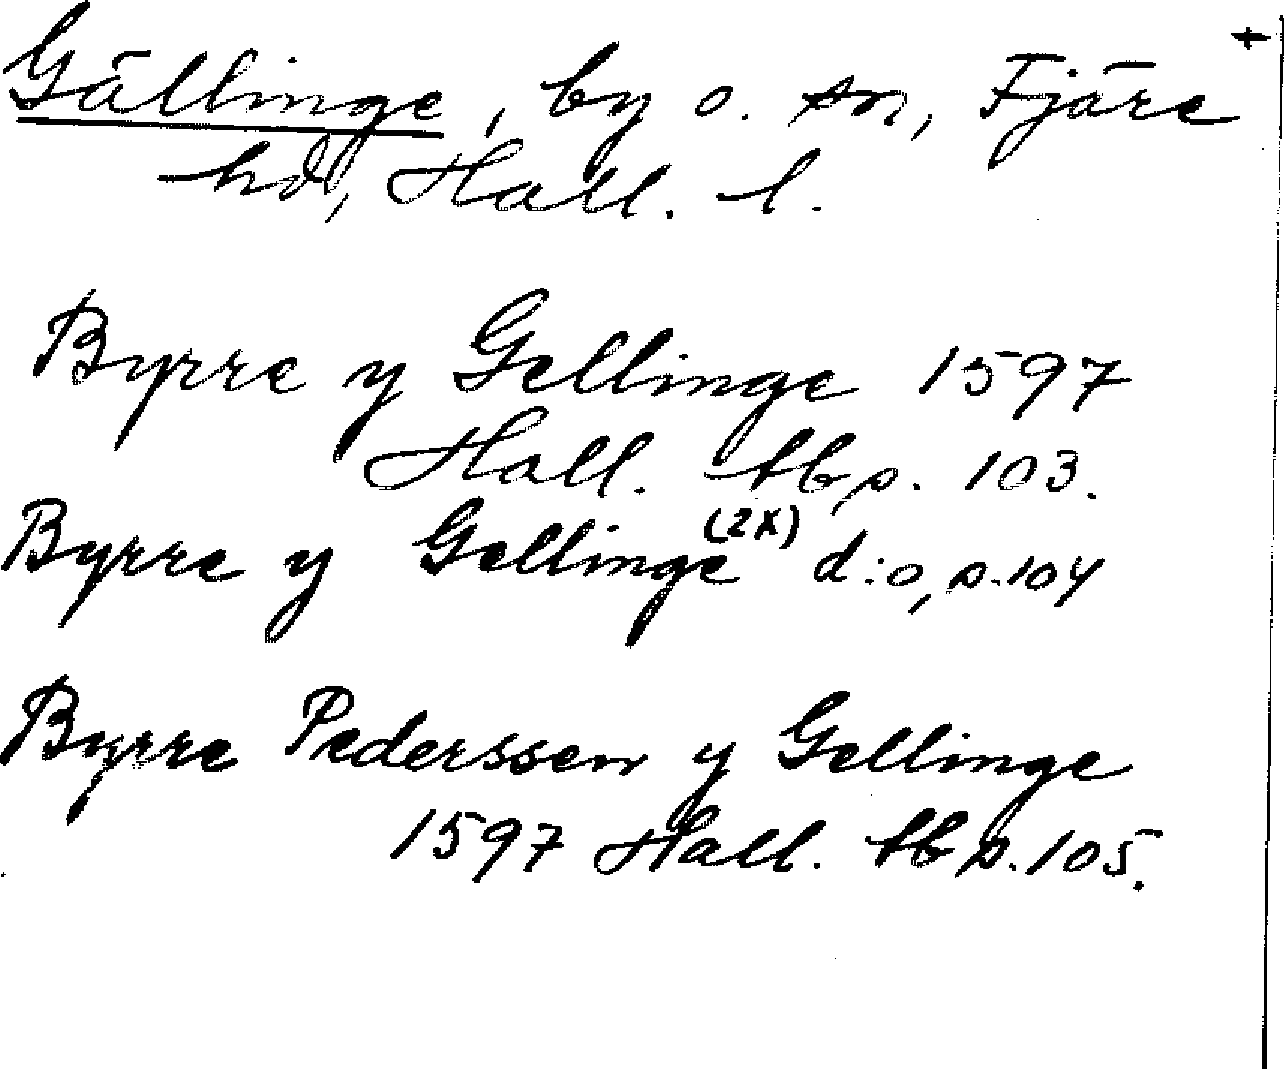 +
Gällinge, by o. sn, Fjäre
hd, Hall. l.
Byrre y Gellinge 1597
Hall. tb p. 103.
Byrre y Gellinge (2x) d:o, p. 104
Byrre Pederssen y Gellinge
1597 Hall. tb p. 105.